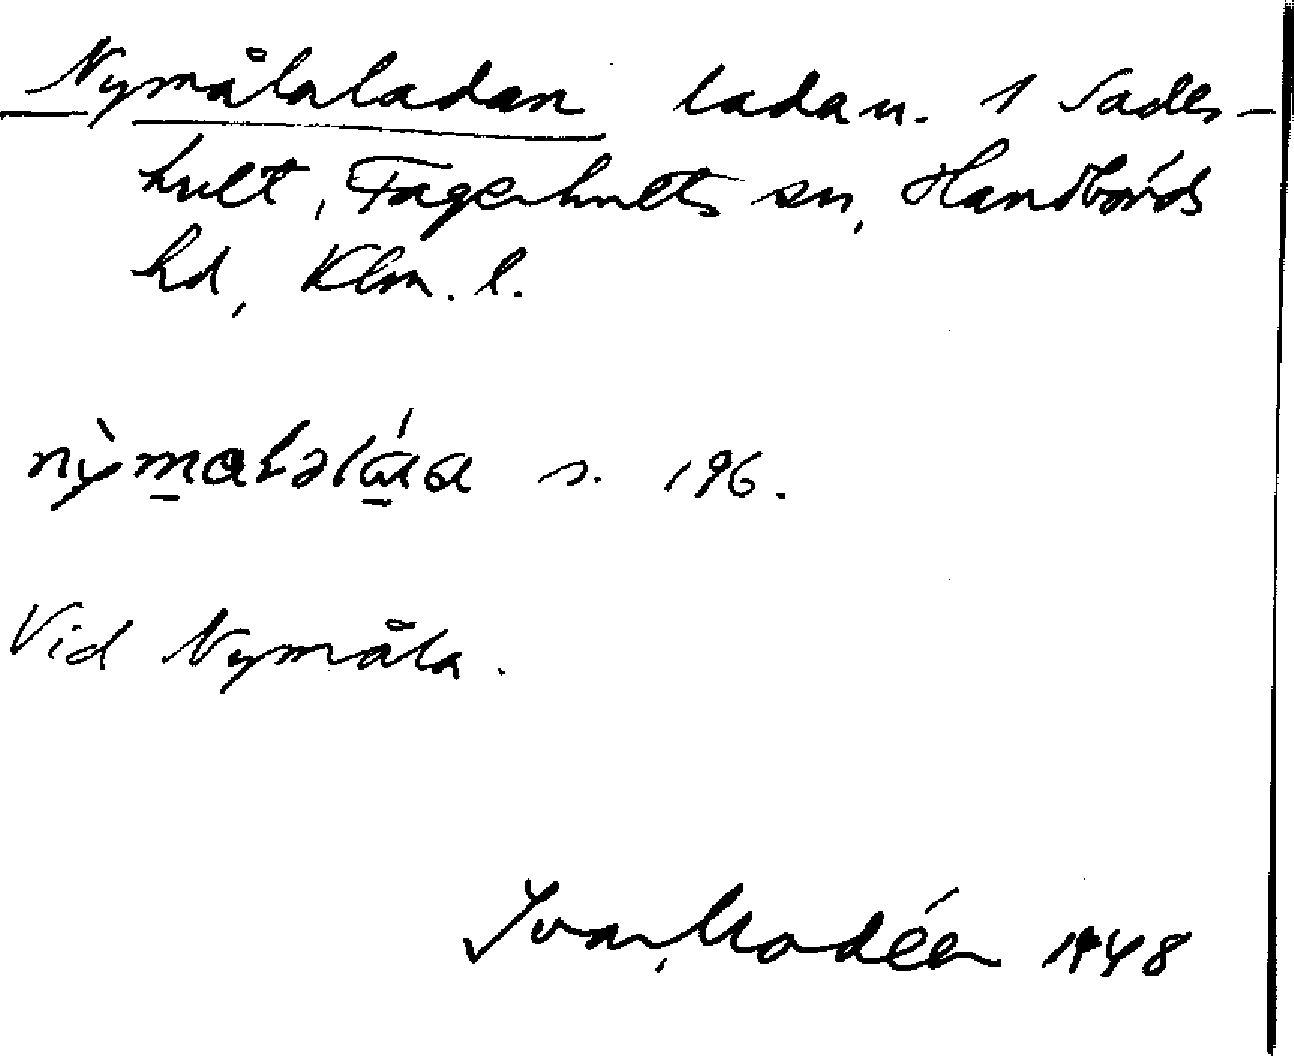 Nymålaladan ladan. 1 Sades-
hult, Fagerhults sn, Handbörds
hd, Klm. l.
s. 196.
Vid Nymåla.
Ivar Modéer 1948